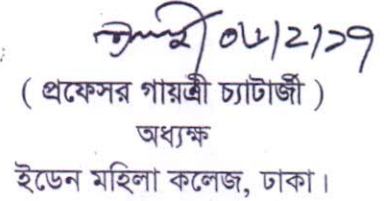 ( প্রফেসর গায়ত্রী চ্যাটার্জী )
অধ্যক্ষ
ইডেন মহিলা কলেজ, ঢাকা।